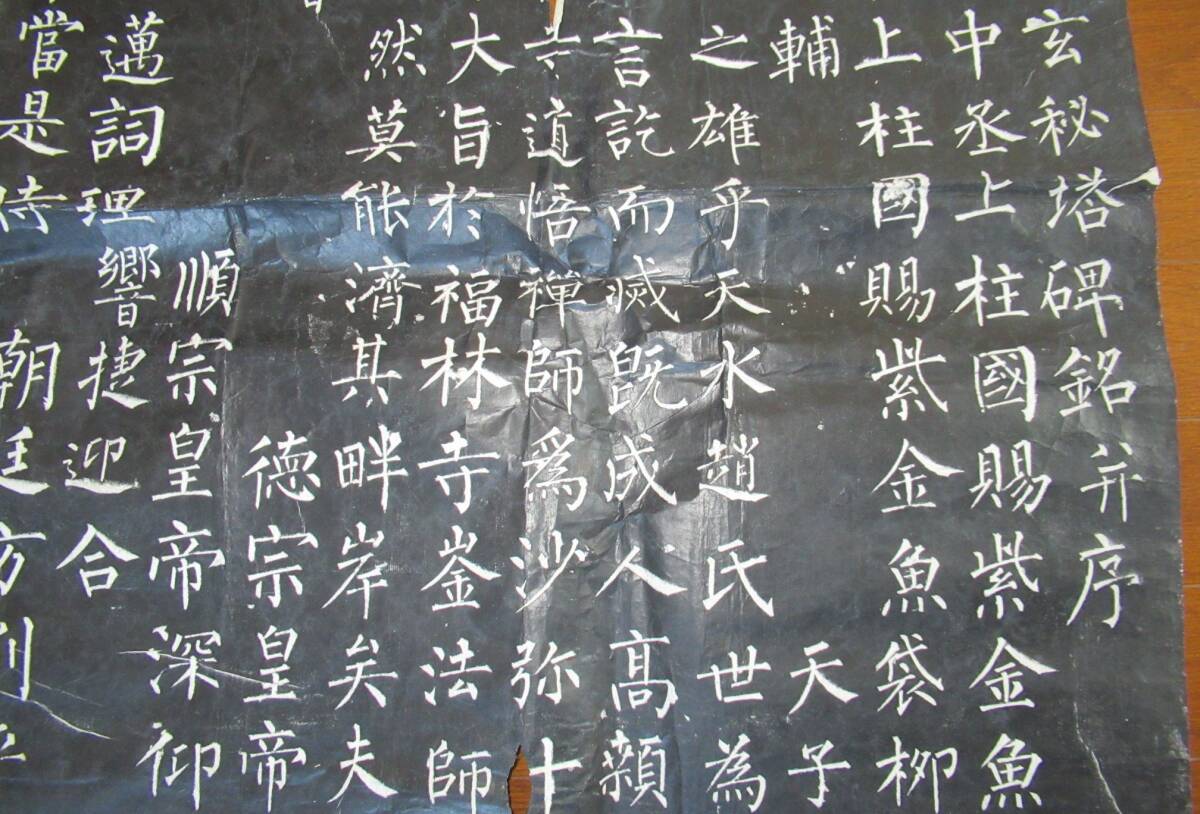 玄秘塔碑銘并序
中丞上柱國賜紫金魚
上柱國賜紫金魚袋柳
輔天子
之雄乎天水趙氏世為
言訖而滅既成人高顙
道悟禪師爲沙弥十
大旨於福林寺崟法師
然莫能濟其畔岸矣夫
德宗皇帝
順宗皇帝深仰
邁詞理響捷迎合
當是時朝廷方